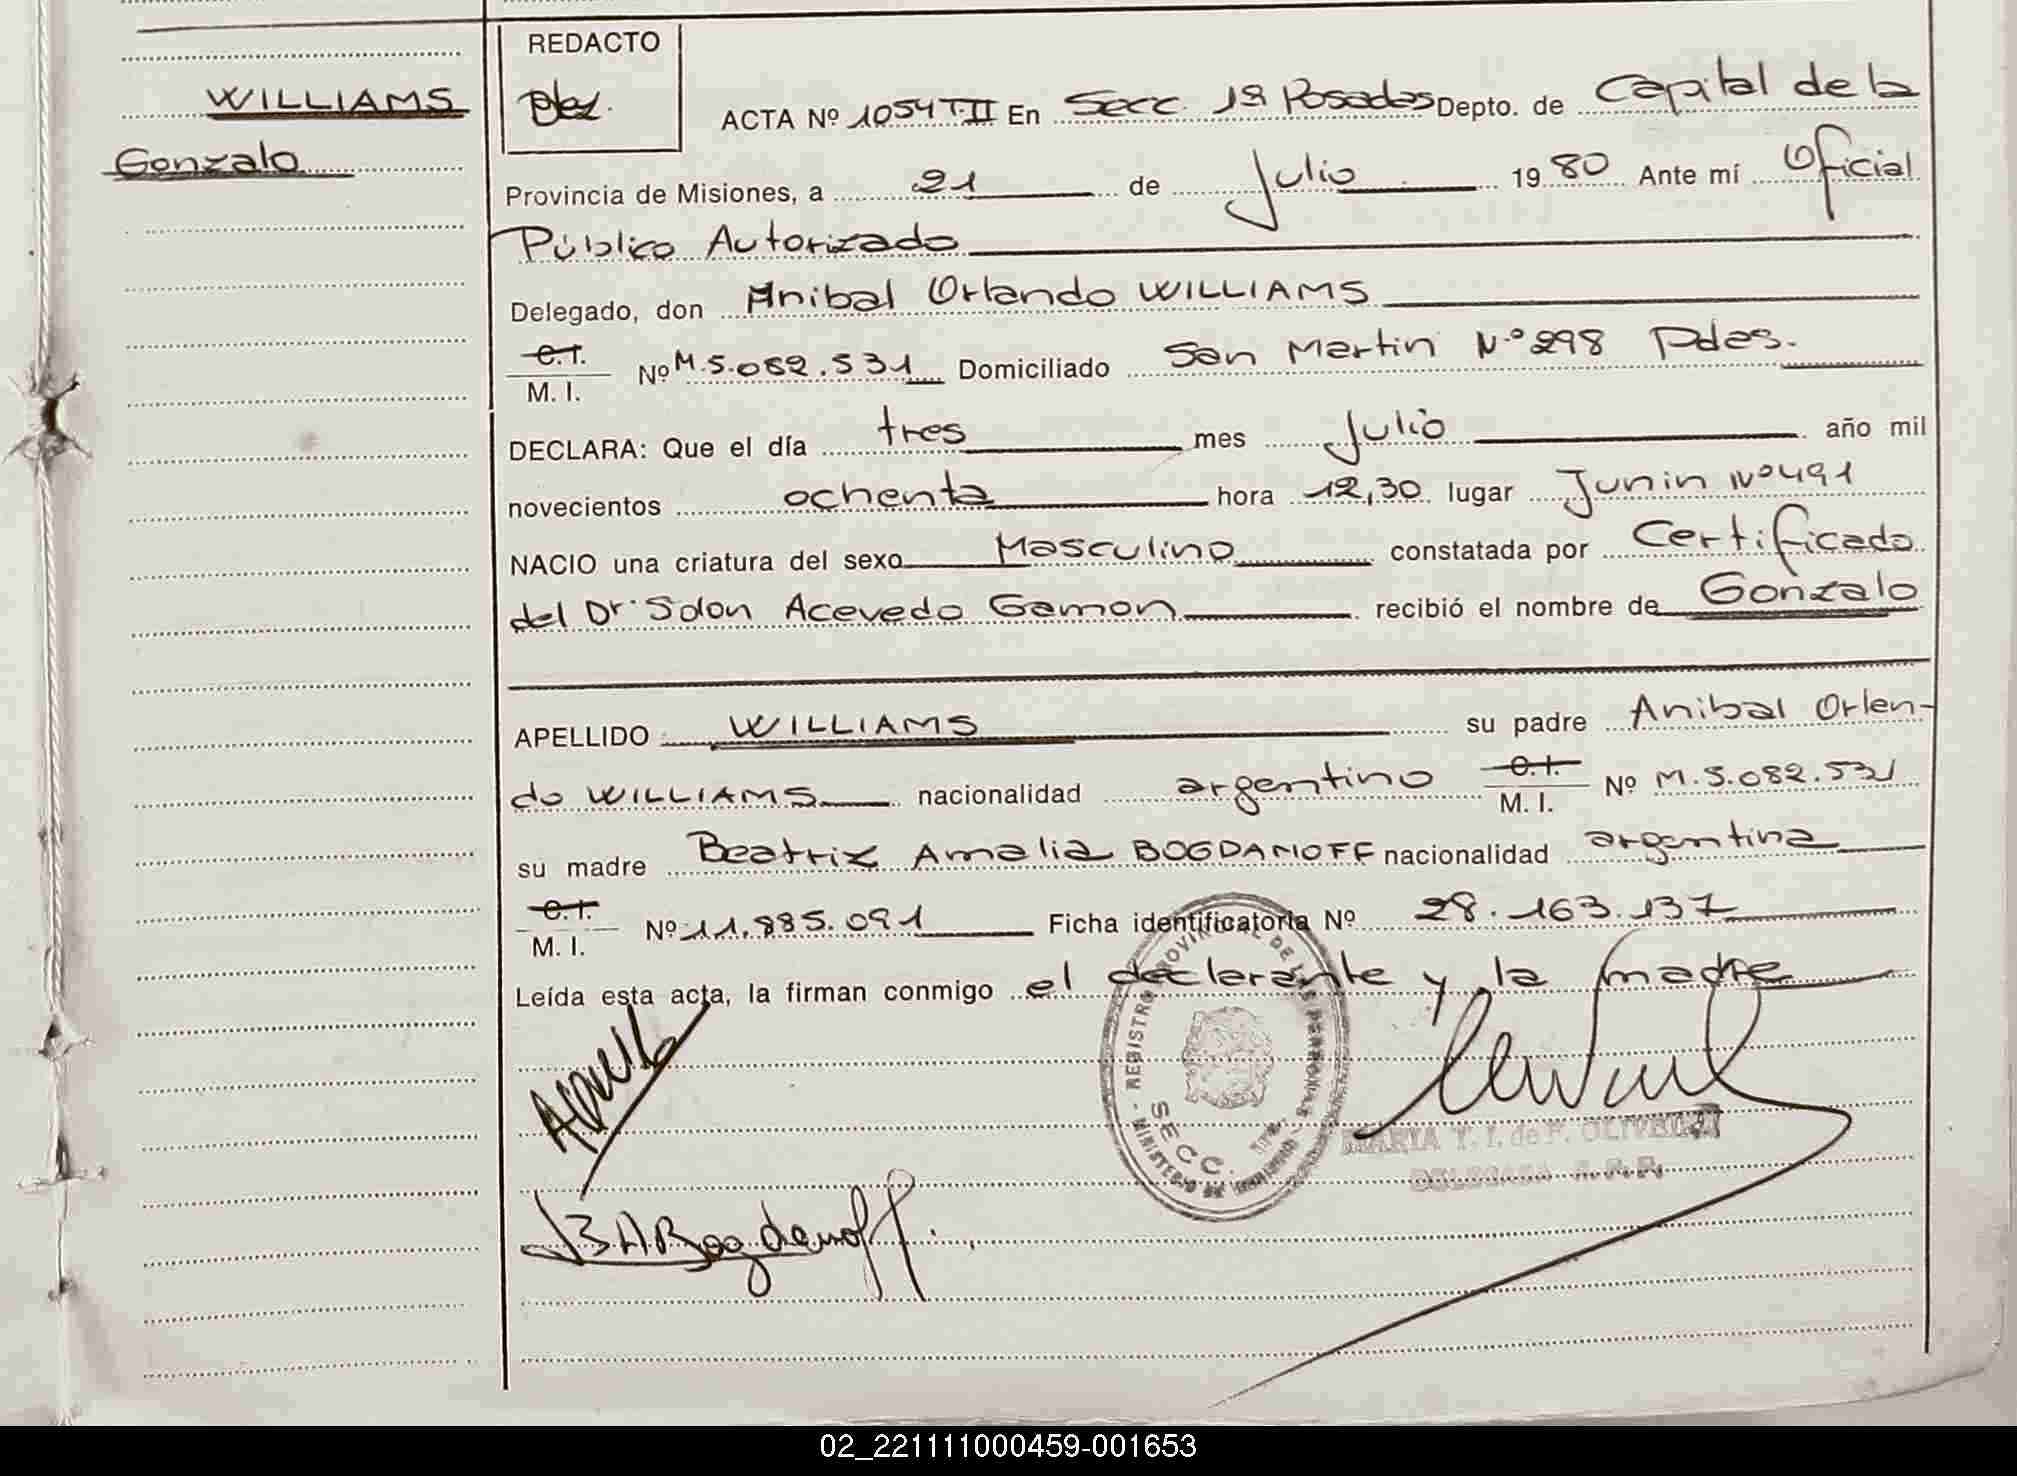 WILLIAMS
Gonzalo
REDACTO
ACTA Nº 1054 T-II En Secc. 1ª Posadas Depto. de Capital de la
Provincia de Misiones, a 21 de Julio 1980 Ante mí Oficial
Público Autorizado
Delegado, don Anibal Orlando WILLIAMS
C.I. M. I. Nº M.5.082.531 Domiciliado San Martin Nº 298 Pdas.
DECLARA: Que el día tres mes Julio año mil
novecientos ochenta hora 12,30 lugar Junin Nº 491
NACIO una criatura del sexo Masculino constatada por Certificado
del Dr. Solon Acevedo Gamon recibió el nombre de Gonzalo
APELLIDO WILLIAMS su padre Anibal Orlan-
do WILLIAMS nacionalidad argentino C.I. M. I. Nº M.5.082.531
su madre Beatriz Amalia BOGDANOFF nacionalidad argentina
C.I. M. I. Nº 11.885.091 Ficha identificatoria Nº 28.163.137
Leída esta acta, la firman conmigo el declarante y la madre
REGISTRO PROVINCIAL DE LAS PERSONAS
MINISTERIO DE
SECC. 1ra.
MARIA T. I. de F. OLIVEIRA
DELEGADA R.P.P.
BABogdanoff.
02_221111000459-001653